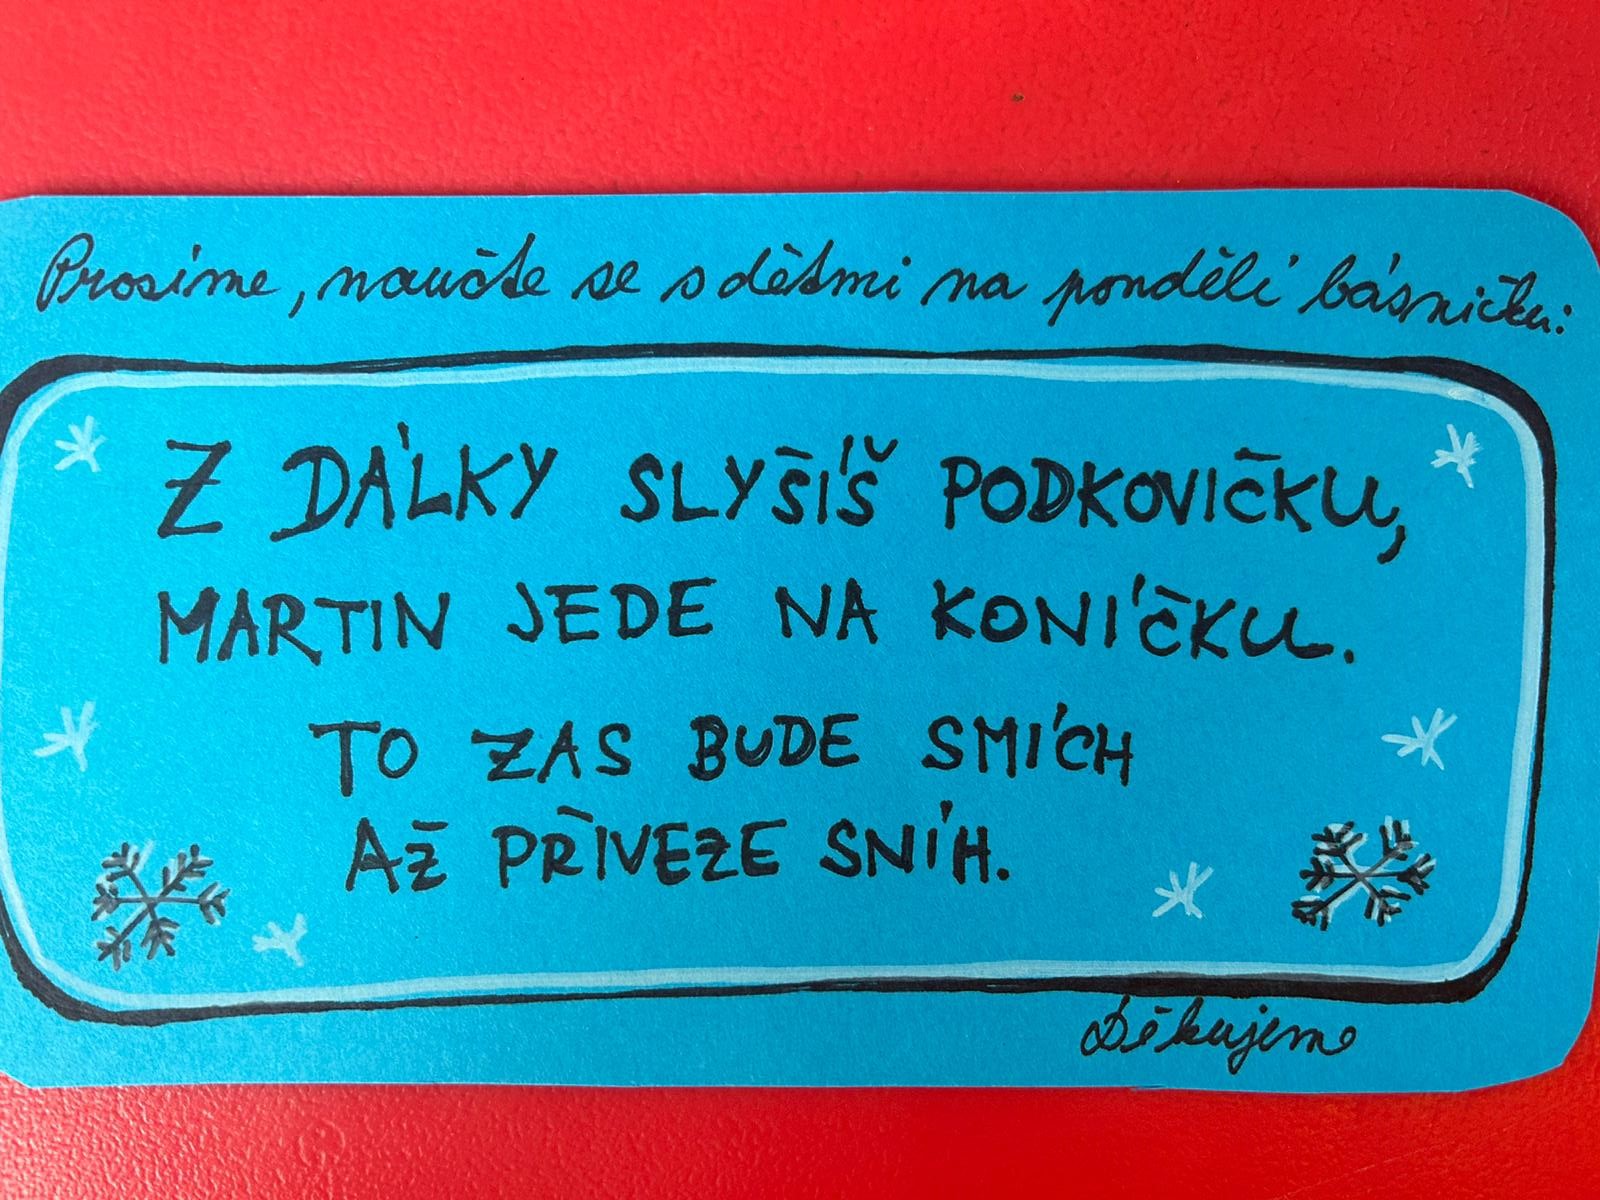 Prosíme, naučte se s dětmi na pondělí básničku:
Z DÁLKY SLYŠÍŠ PODKOVIČKU,
MARTIN JEDE NA KONÍČKU.
TO ZAS BUDE SMÍCH
AŽ PŘIVEZE SNÍH.
Děkujeme